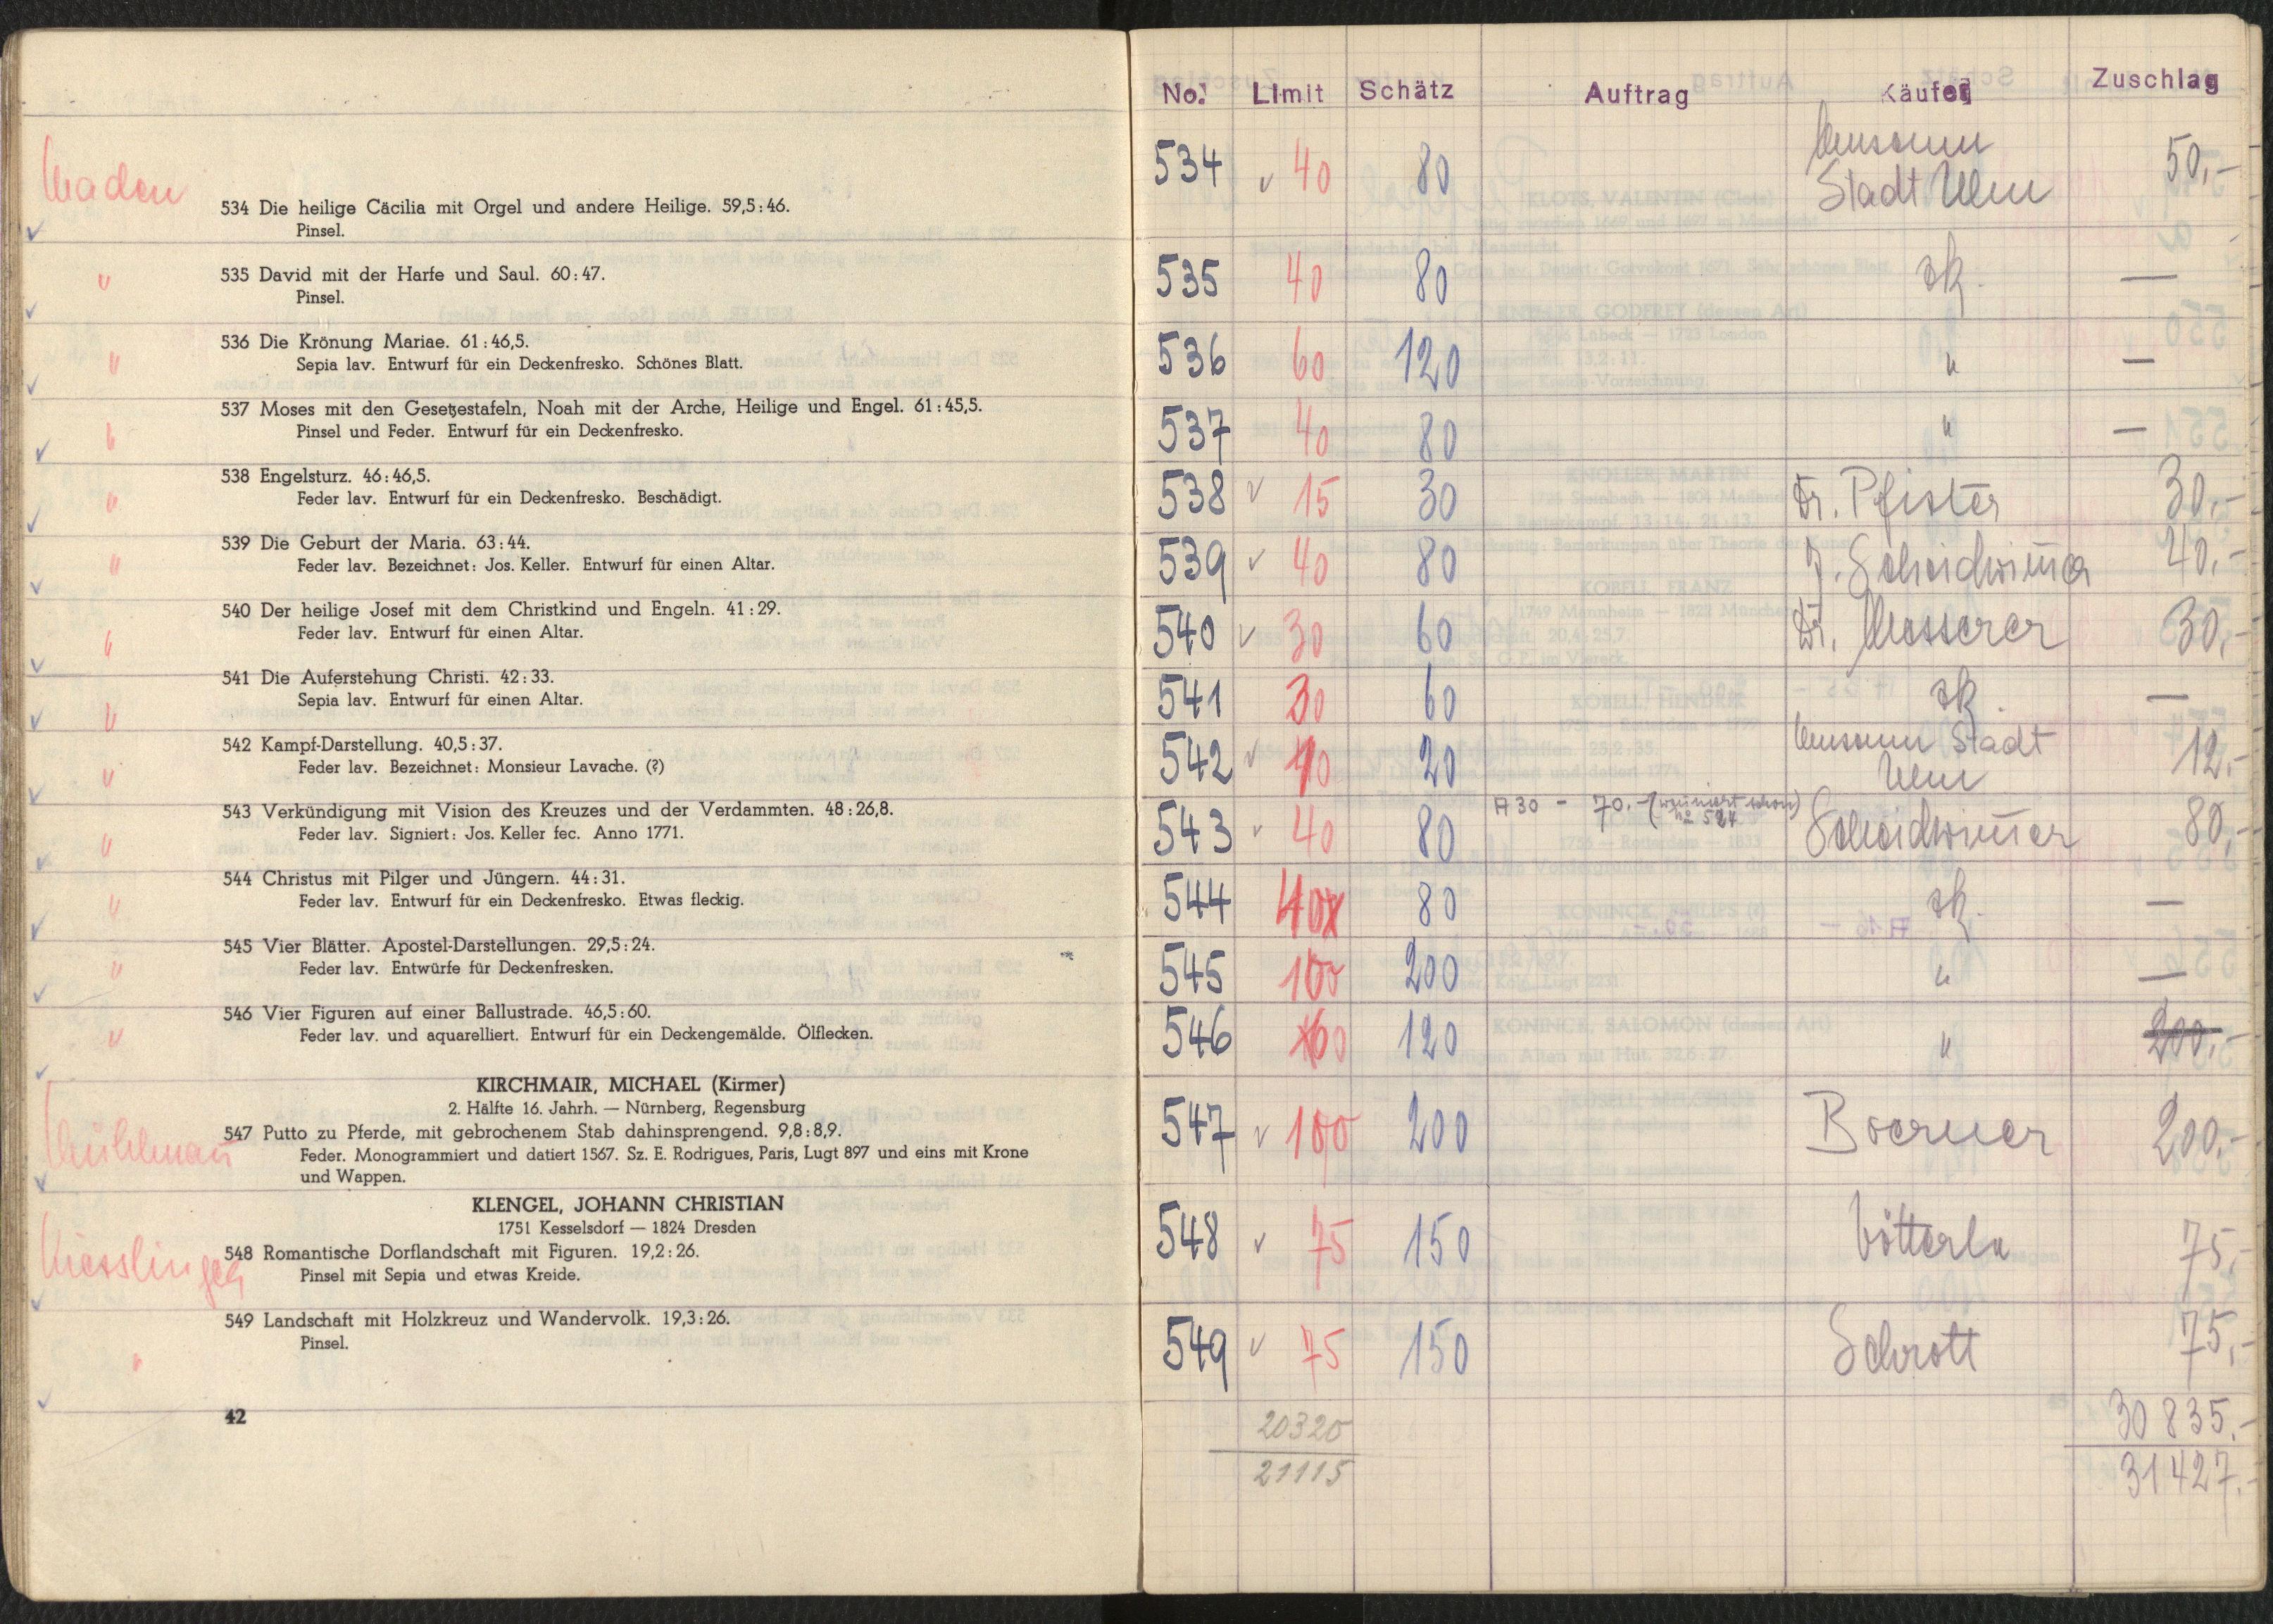 Maden
534 Die heilige Cäcilia mit Orgel und andere Heilige. 59,5:46.
Pinsel.
" 535 David mit der Harfe und Saul. 60:47.
Pinsel.
" 536 Die Krönung Mariae. 61:46,5.
Sepia lav. Entwurf für ein Deckenfresko. Schönes Blatt.
" 537 Moses mit den Gesetzestafeln, Noah mit der Arche, Heilige und Engel. 61:45,5.
Pinsel und Feder. Entwurf für ein Deckenfresko.
" 538 Engelsturz. 46:46,5.
Feder lav. Entwurf für ein Deckenfresko. Beschädigt.
" 539 Die Geburt der Maria. 63:44.
Feder lav. Bezeichnet: Jos. Keller. Entwurf für einen Altar.
" 540 Der heilige Josef mit dem Christkind und Engeln. 41:29.
Feder lav. Entwurf für einen Altar.
" 541 Die Auferstehung Christi. 42:33.
Sepia lav. Entwurf für einen Altar.
" 542 Kampf-Darstellung. 40,5:37.
Feder lav. Bezeichnet: Monsieur Lavache. (?)
" 543 Verkündigung mit Vision des Kreuzes und der Verdammten. 48:26,8.
Feder lav. Signiert: Jos. Keller fec. Anno 1771.
" 544 Christus mit Pilger und Jüngern. 44:31.
Feder lav. Entwurf für ein Deckenfresko. Etwas fleckig.
" 545 Vier Blätter. Apostel-Darstellungen. 29,5:24.
Feder lav. Entwürfe für Deckenfresken.
" 546 Vier Figuren auf einer Ballustrade. 46,5:60.
Feder lav. und aquarelliert. Entwurf für ein Deckengemälde. Ölflecken.
KIRCHMAIR, MICHAEL (Kirmer)
2. Hälfte 16. Jahrh. — Nürnberg, Regensburg
547 Putto zu Pferde, mit gebrochenem Stab dahinsprengend. 9,8:8,9.
Feder. Monogrammiert und datiert 1567. Sz. E. Rodrigues, Paris, Lugt 897 und eins mit Krone
und Wappen.
KLENGEL, JOHANN CHRISTIAN
1751 Kesselsdorf — 1824 Dresden
Kiesslinger 548 Romantische Dorflandschaft mit Figuren. 19,2:26.
Pinsel mit Sepia und etwas Kreide.
" 549 Landschaft mit Holzkreuz und Wandervolk. 19,3:26.
Pinsel.
42
No. Limit Schätz Auftrag Käufer Zuschlag
534 40 80 Museum Stadt Ulm 50,-
535 40 80 zk. —
536 60 120 " —
537 40 80 " —
538 15 30 Dr. Pfister 30,-
539 40 80 J. Scheidwimmer 40,-
540 30 60 Dr. Messerer 30,-
541 30 60 zk. —
542 10 20 Museum Stadt Ulm 12,-
543 40 80 A 30 - 70.- Scheidwimmer 80,-
544 40 80 zk. —
545 100 200 " —
546 60 120 " 200.-
547 100 200 Boerner 200,-
548 75 150 Vötterle 75,-
549 75 150 Schrott 75,-
20320 30 835.-
21115 31427.-